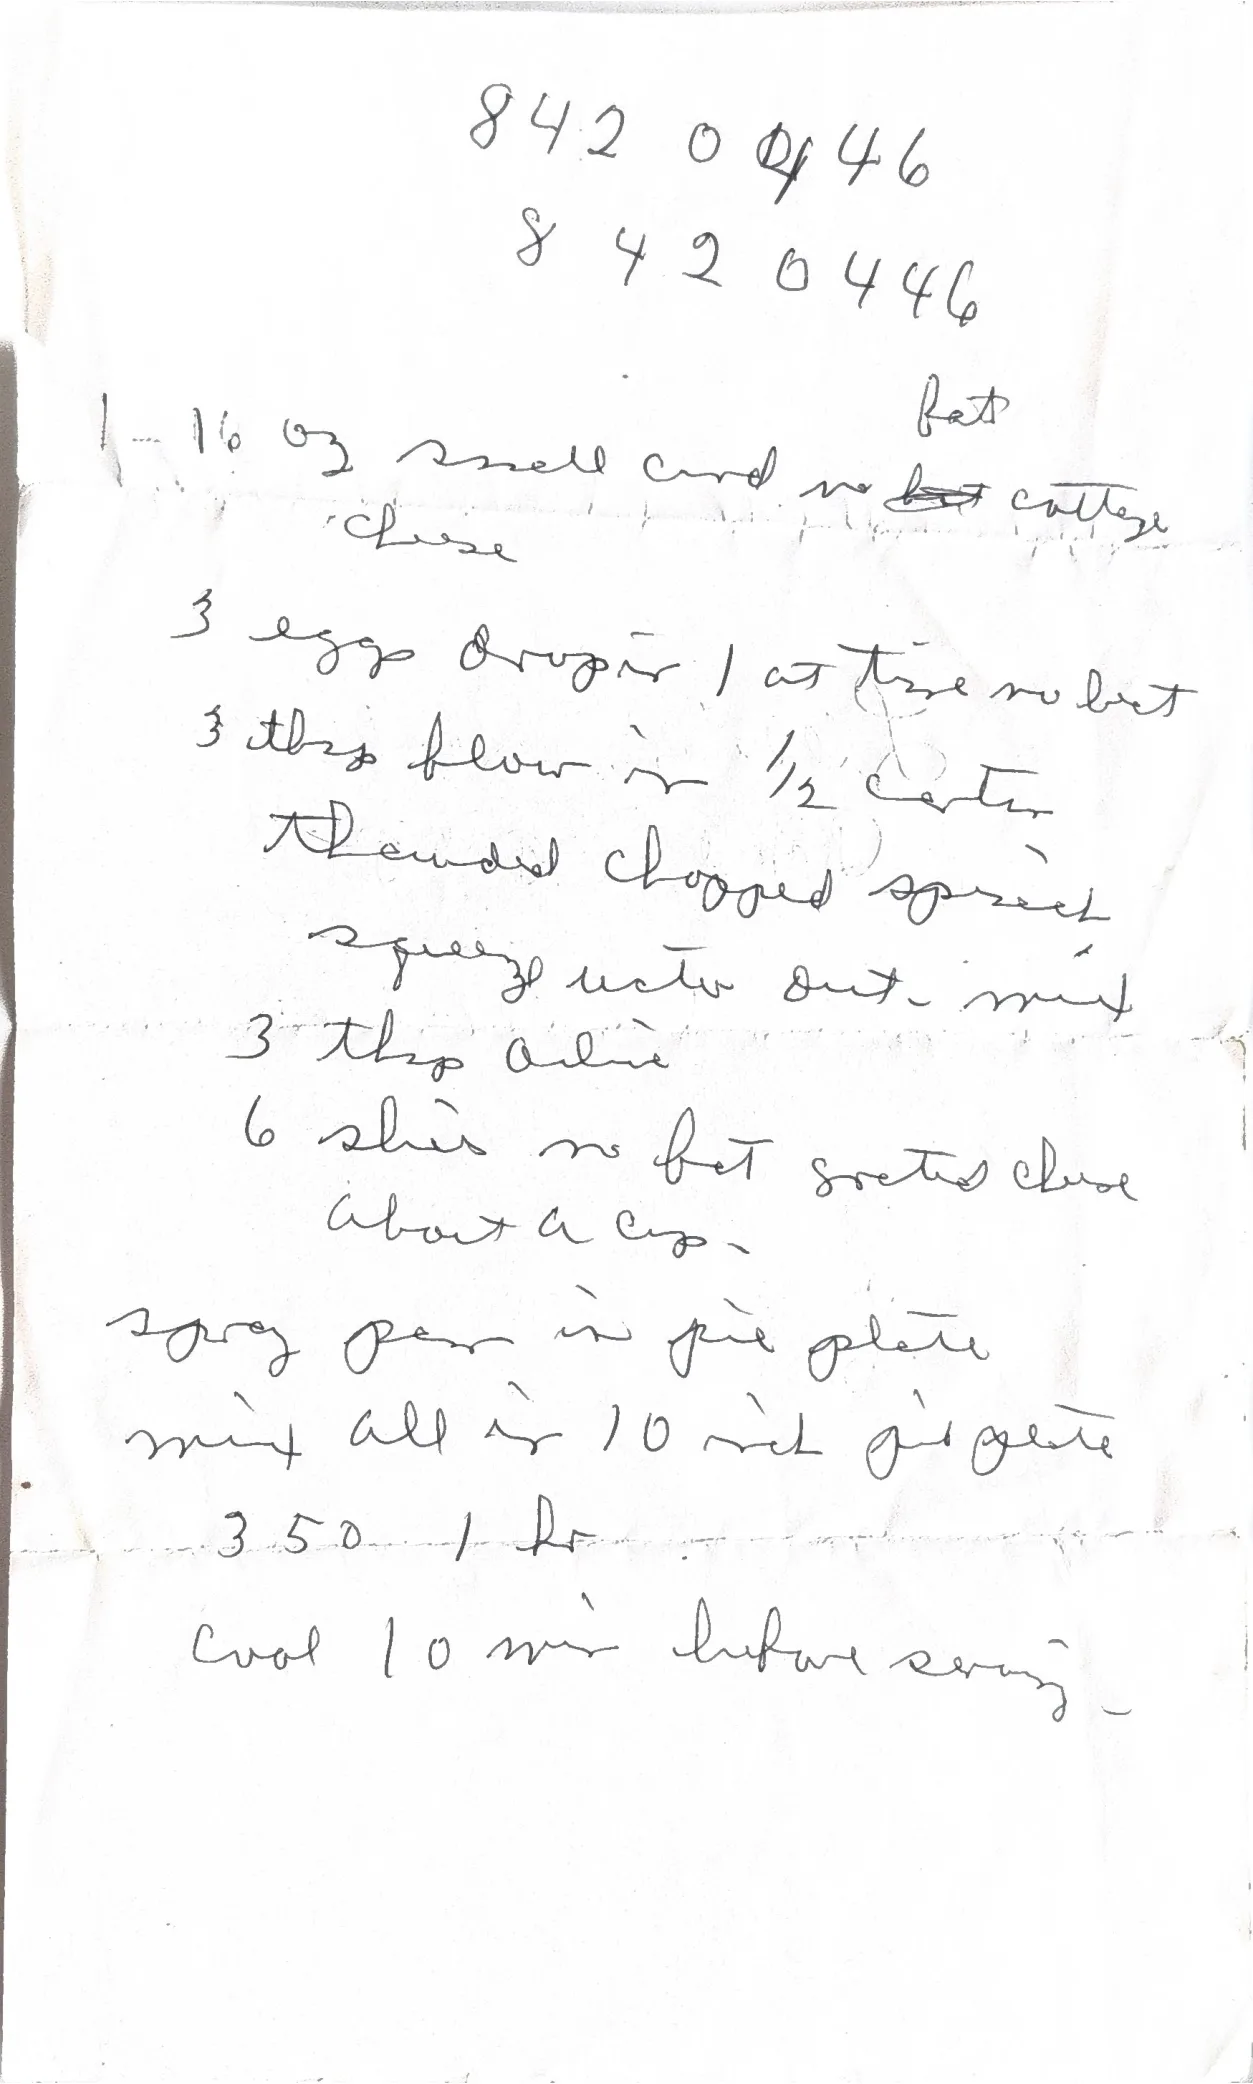 842 0 0446
8 4 2 0 446
fat
1 - 16 oz small curd no cottage
cheese
3 eggs drop in 1 at time no beat
3 tbsp flour in 1/2 carton
thawded chopped spinach
squeeze water out - mix
3 tbsp
6 slices no fat grated cheese
about a cup.
spray pan in pie plate
mix all in 10 inch pie plate
350 1 hr
cool 10 min before serving -